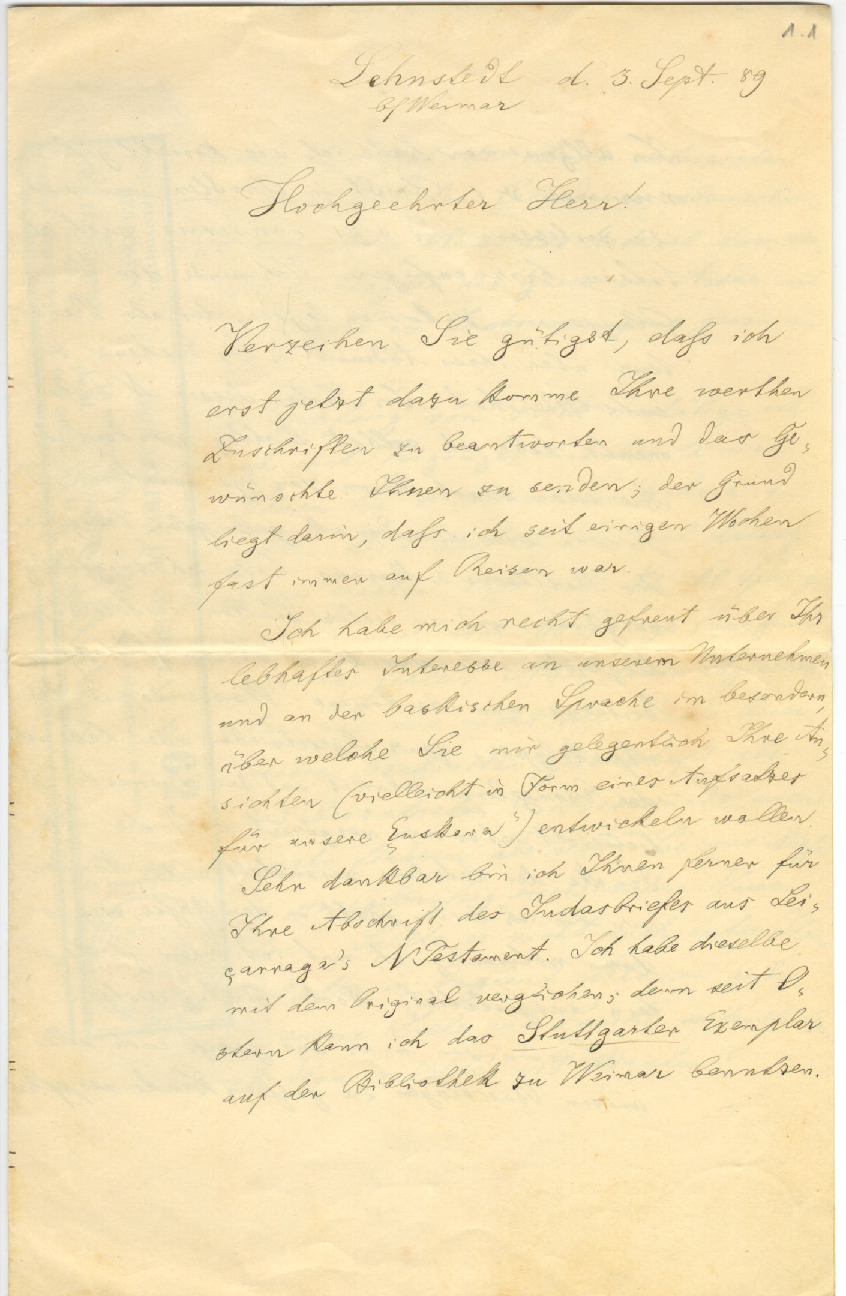 1.1
Lehnstedt d. 3. Sept. 89
b/Weimar
Hochgeehrter Herr!
Verzeihen Sie gütigst, daſs ich
erst jetzt dazu komme Ihre werthen
Zuschriften zu beantworten und das Ge-
wünschte Ihnen zu senden; der Grund
liegt darin, daſs ich seit einigen Wochen
fast immer auf Reisen war.
Ich habe mich recht gefreut über Ihr
lebhaftes Interesse an unserem Unternehmen
und an der baskischen Sprache im besondern,
über welche Sie mir gelegentlich Ihre An-
sichten (vielleicht in Form eines Aufsatzes
für unsere „Euskara") entwickeln wollen.
Sehr dankbar bin ich Ihnen ferner für
Ihre Abschrift des Judasbriefes aus Lei-
çarraga's N Testament. Ich habe dieselbe
mit dem Original verglichen; denn seit O-
stern kann ich das Stuttgarter Exemplar
auf der Bibliothek zu Weimar benutzen.